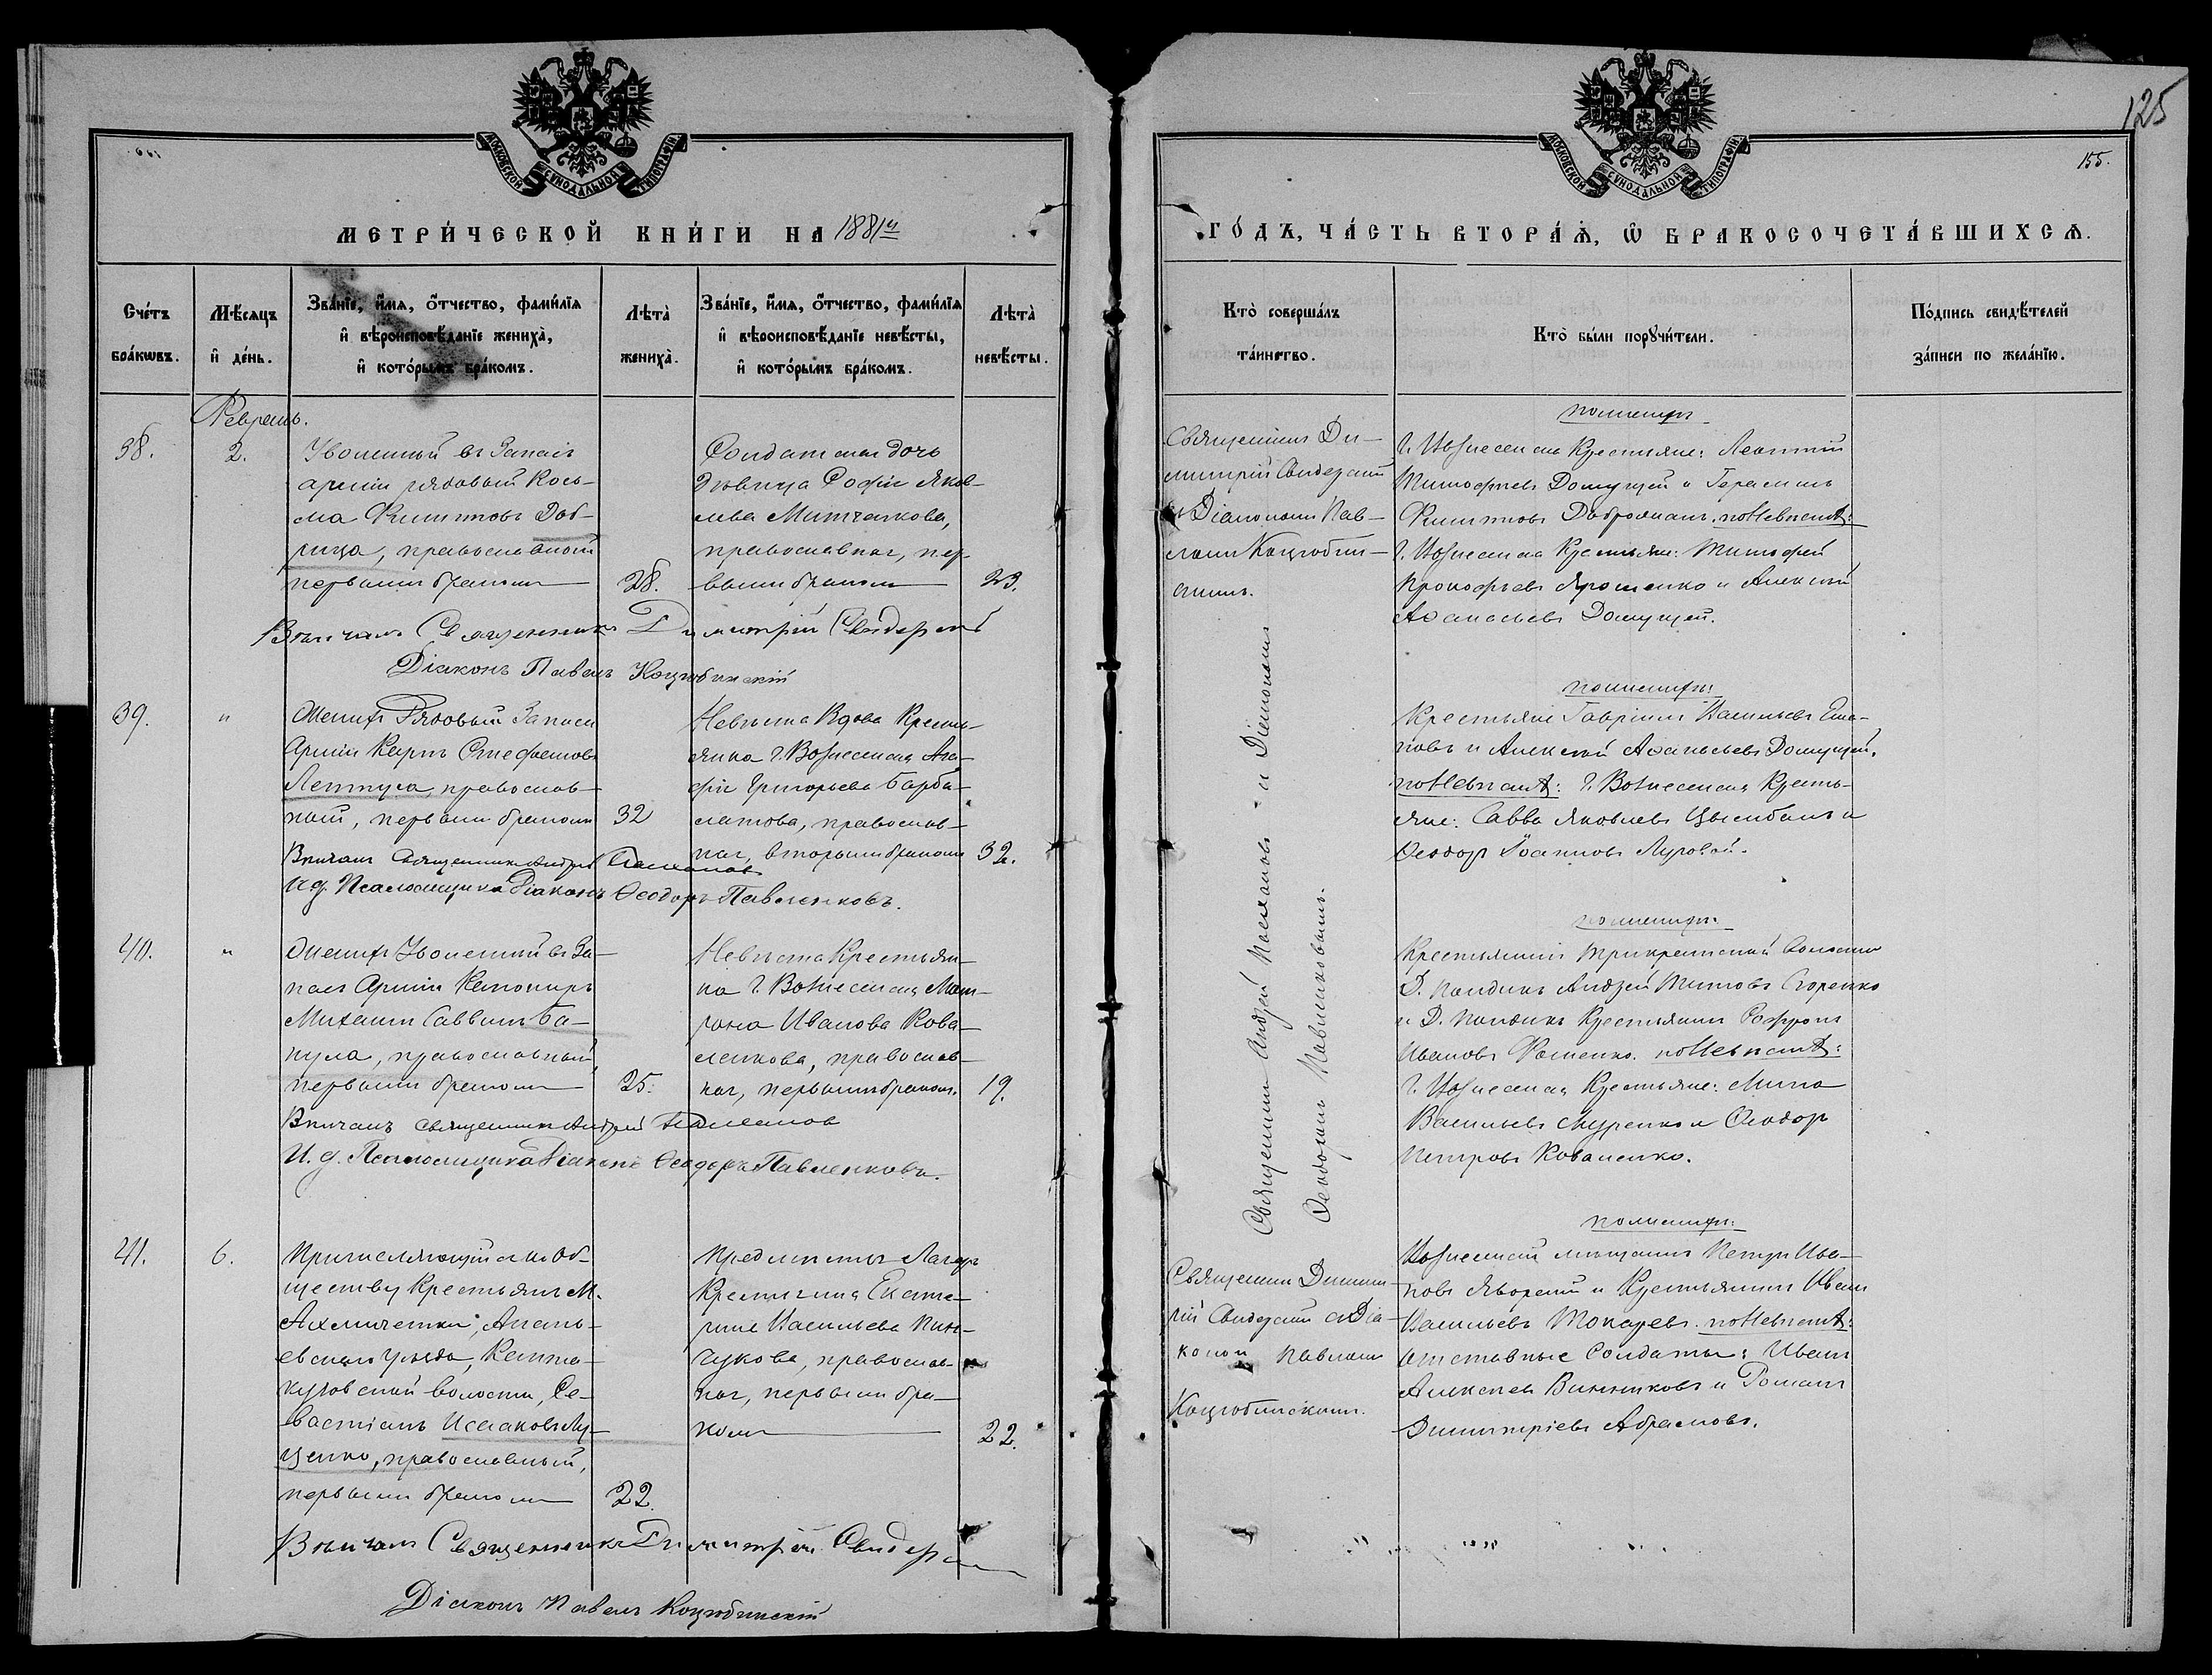 125
155.
МОСКОВСКОЙ СѴНОДАЛЬНОЙ ТИПОГРАФІИ
МОСКОВСКОЙ СѴНОДАЛЬНОЙ ТИПОГРАФІИ
МЕТРИ́ЧЕСКОЙ КНИ́ГИ НА 1881й
ГО́ДЪ, ЧА́СТЬ ВТОРА́Ѧ, Ѡ҆ БРАКОСОЧЕТА́ВШИХСѦ.
Сче́тъ бра́кѡвъ.
Мѣ́сяцъ и҆ де́нь.
Зва́нїе, и҆́мя, о҆́тчество, фами́лїя
и҆ вѣроисповѣ́данїе жениха̀,
и҆ кото́рымъ бра́комъ.
Лѣта̀ жениха̀.
Зва́нїе, и҆́мя, о҆́тчество, фами́лїя
и҆ вѣроисповѣ́данїе невѣ́сты,
и҆ кото́рымъ бра́комъ.
Лѣта̀ невѣ́сты.
Кто̀ соверша́лъ та́инство.
Кто̀ бы́ли порꙋчи́тели.
По́дпись свидѣ́телей за́писи по жела́нїю.
Февраль.
38.
2.
Уволенный въ Запасъ
арміи рядовый Кось-
ма Филиповъ Доб-
рица, православный
первымъ бракомъ
28.
Солдатская дочь
дѣвица Софія Яков-
лева Митчакова,
православная, пер-
вымъ бракомъ
23.
Священникъ Ди-
митрій Свидерскій
и Діакономъ Пав-
ломъ Коцюбин-
скимъ.
по женихѣ
г. Вознесенска Крестьяне: Леонтій
Тимофѣевъ Домущей и Герасимъ
Филиповъ Доброжанъ. по Невѣстѣ:
г. Вознесенска Крестьяне: Тимофей
Прокофьевъ Ярошенко и Алексѣй
Аѳанасьевъ Домущей.
Вѣнчалъ Священникъ Димитрій Свидерскій
Діаконъ Павелъ Коцюбинскій
39.
"
Женихъ Рядовый Запаса
Арміи Карпъ Стефановъ
Лептуга, православ-
ный, первымъ бракомъ
32
Невѣста Вдова Кресть-
янка г. Вознесенска Ага-
фія Григорьева Барба-
латова, православ-
ная, вторымъ бракомъ
32.
Священникъ Андрей Паслановъ и Діакономъ
Ѳеодоромъ Павленковымъ.
по женихѣ:
Крестьяне Гавріилъ Васильевъ
и Алексѣй Аѳанасьевъ Домущей.
по Невѣстѣ: г. Вознесенска Кресть-
яне: Савва Яковлевъ Цымбалъ и
Ѳеодоръ Іоанновъ Луговой.
Вѣнчалъ Священникъ Андрей
И. д. Псаломщика Діаконъ Ѳеодоръ Павленковъ.
40.
"
Женихъ Уволенный въ За-
пасъ Арміи Канониръ
Михаилъ Саввинъ Ба-
кула, православный,
первымъ бракомъ
25.
Невѣста Крестьян-
ка г. Вознесенска Мат-
рона Иванова Кова-
ленкова, православ-
ная, первымъ бракомъ.
19.
по женихѣ:
Крестьянинъ Трикратской волости
Д. Андрей Титовъ
и Д. Крестьянинъ Софронъ
Ивановъ Фоменко. по Невѣстѣ:
г. Вознесенска Крестьяне: Мина
Васильевъ Муренко и Ѳеодоръ
Петровъ Коваленко.
Вѣнчалъ Священникъ Андрей
И. д. Псаломщика Діаконъ Ѳеодоръ Павленковъ.
41.
6.
Причисляющійся къ Об-
ществу Крестьянъ М.
Ахмечетки, Анань-
евскаго уѣзда,
волости, Се-
вастіанъ Исааковъ Лу-
ценко, православный,
первымъ бракомъ
22.
Предмѣстья Лагерь
Крестьянка Екате-
рина Васильева Пин-
чукова, православ-
ная, первымъ бра-
комъ
22.
Священникъ Димит-
рій Свидерскій съ Діа-
кономъ Павломъ
Коцюбинскимъ.
по женихѣ:
Вознесенскій мѣщанинъ Петръ Ива-
новъ Яворскій и Крестьянинъ Иванъ
Васильевъ Токаревъ. по Невѣстѣ:
отставные Солдаты: Иванъ
Алексѣевъ Винниковъ и Романъ
Димитріевъ Абрамовъ.
Вѣнчалъ Священникъ Димитрій Свидерскій
Діаконъ Павелъ Коцюбинскій